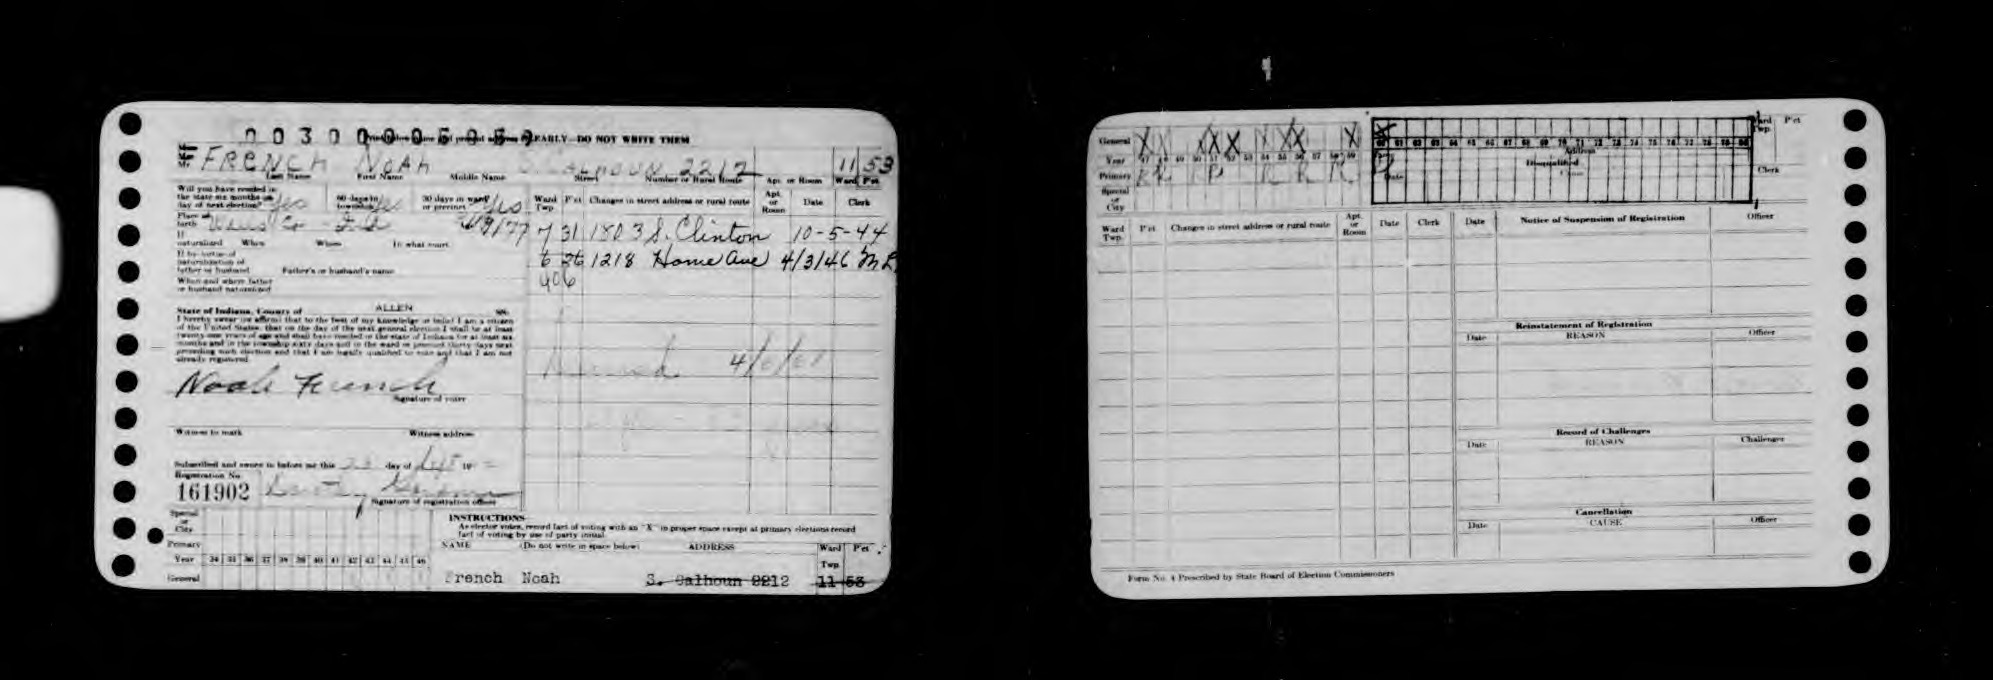 00300005959
EARLY—DO NOT WRITE THEM
Mr.
FRENCH Noah S. Calhoun 2212 11 53
Last Name First Name Middle Name Street Number or Rural Route Apt. or Room Ward Pct.
Will you have resided in
the state six months on
day of next election? Yes
60 days in
township Yes
30 days in ward
or precinct Yes
Ward
Twp. P'ct Changes in street address or rural route Apt.
or
Room Date Clerk
Place of
birth Wells Co Ind
7 31 1803 S. Clinton 10-5-44
If
naturalized When Where In what court
6 26 1218 Home Ave 4/3/46
406
If by virtue of
naturalization of
father or husband Father's or husband's name
When and where father
or husband naturalized
State of Indiana, County of ALLEN SS:
I hereby swear (or affirm) that to the best of my knowledge or belief I am a citizen
of the United States, that on the day of the next general election I shall be at least
twenty-one years of age and shall have resided in the state of Indiana for at least six
months and in the township sixty days and in the ward or precinct thirty days next
preceding such election and that I am legally qualified to vote and that I am not
already registered.
Noah French
Signature of voter
Witness to mark Witness address
Subscribed and sworn to before me this 23 day of Sept 19
Registration No.
161902
Signature of registration officer
Special
or
City
Primary
Year 34 35 36 37 38 39 40 41 42 43 44 45 46
General
INSTRUCTIONS
As elector votes, record fact of voting with an "X" in proper space except at primary elections record
fact of voting by use of party initial.
NAME (Do not write in space below) ADDRESS Ward
Twp. P'ct
French Noah S. Calhoun 2212 11-53
General X X X X X X X X X
Year 47 48 49 50 51 52 53 54 55 56 57 58 59
60 61 62 63 64 65 66 67 68 69 70 71 72 73 74 75 76 77 78 79 80
Ward
Twp. P'ct
Primary R R R R R R R
Address
Disqualified
Date Cause Clerk
Special
or
City
Ward
Twp. P'ct Changes in street address or rural route Apt.
or
Room Date Clerk
Date Notice of Suspension of Registration Officer
Reinstatement of Registration
Date REASON Officer
Record of Challenges
Date REASON Challenger
Cancellation
Date CAUSE Officer
Form No. 4 Prescribed by State Board of Election Commissioners